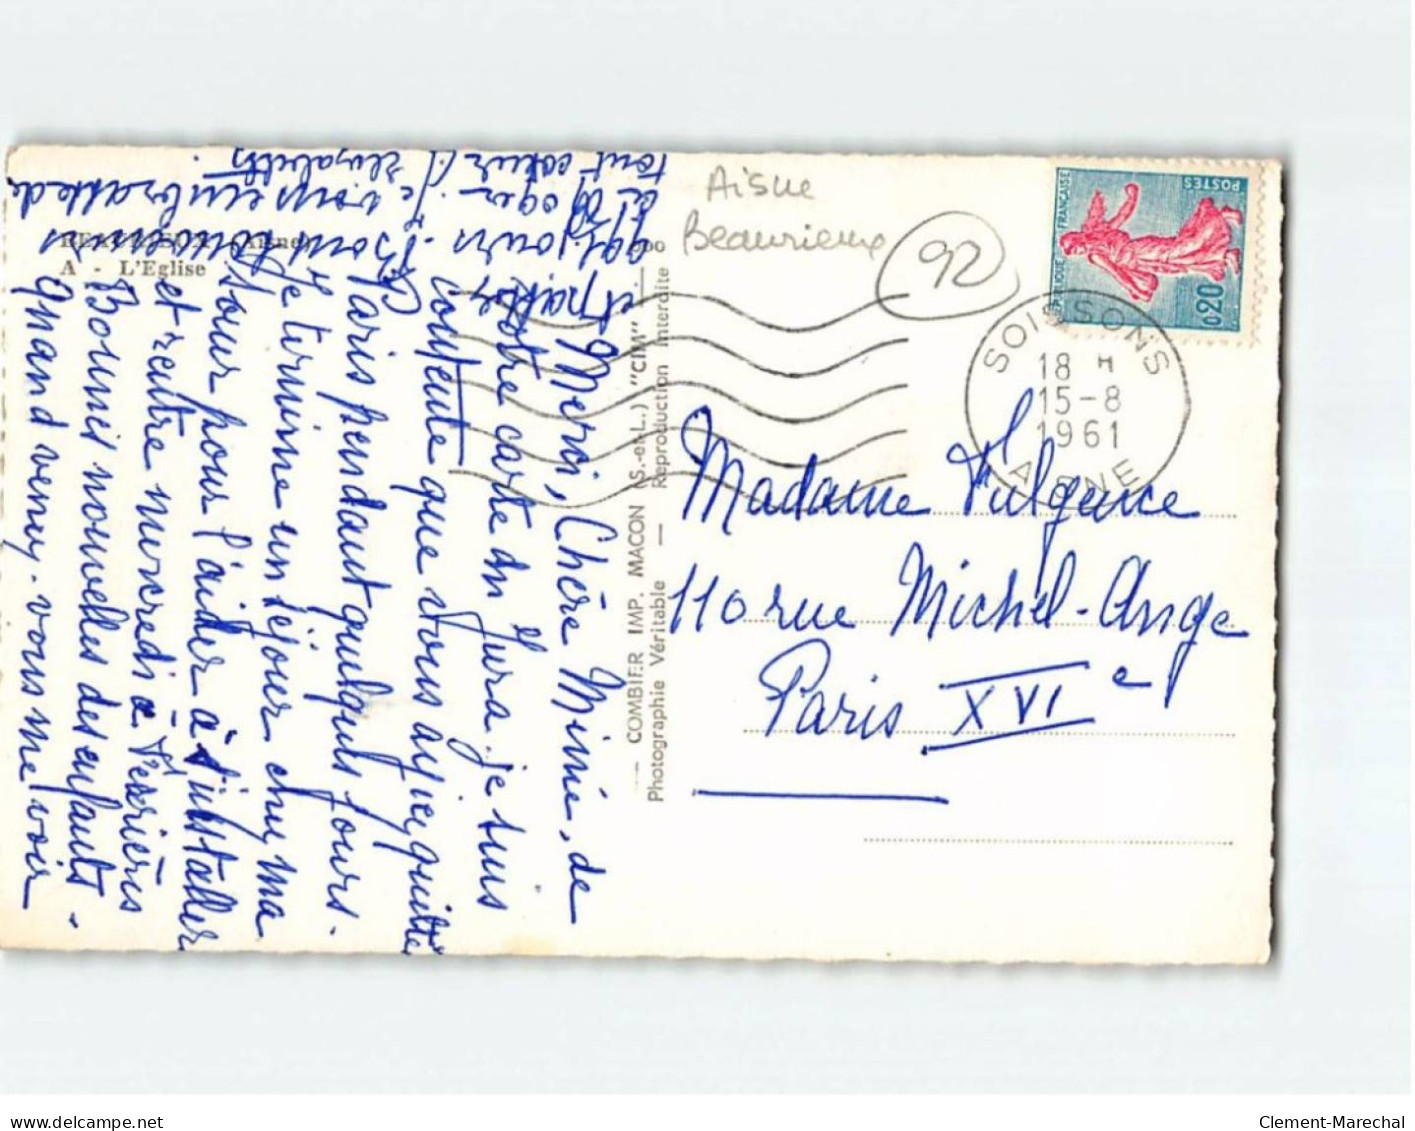 BEAURIEUX (Aisne)
A - L'Eglise
Merci, Chère Minie, de
votre carte du Jura. je suis
contente que vous ayiez quitté
Paris pendant quelques jours.
Je termine un séjour chez ma
sœur pour l'aider à s'installer
et rentre mercredi à
Bonnes nouvelles des enfants.
Quand venez-vous me voir
je vous embrasse de
tout cœur
Elizabeth
COMBIER IMP. MACON (S.-et-L.) "CIM"
Photographie Véritable — Reproduction Interdite
Aisne
Beaurieux
92
RÉPUBLIQUE FRANÇAISE
POSTES
0,20
SOISSONS
18 H
15-8
1961
AISNE
Madame Fulgence
110 rue Michel-Ange
Paris XVIe
delcampe.net
Clement-Marechal